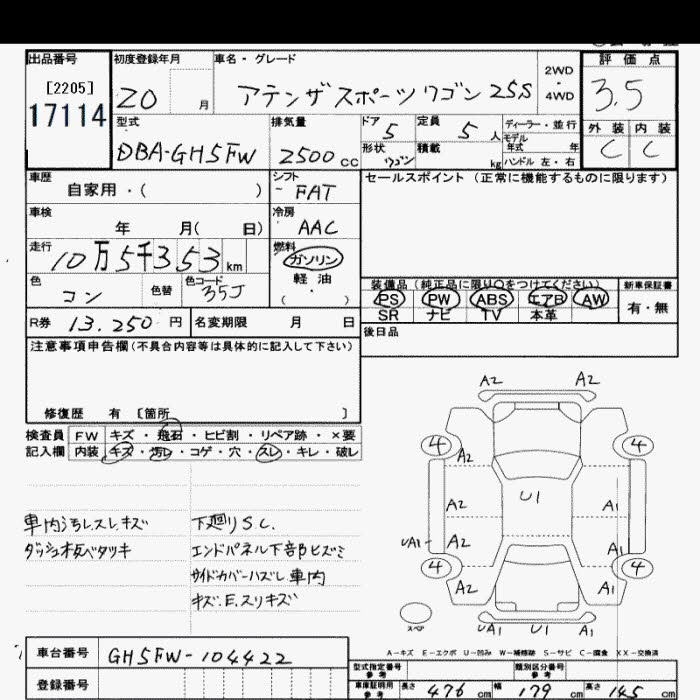 出品番号 初度登録年月 車名・グレード 2WD ・ 4WD 評価点
[2205]
17114
20 月 アテンザスポーツワゴン 25S 3.5
型式 排気量 ドア 定員 ディーラー・並行 外装 内装
DBA-GH5FW 2500 cc 5 5 人 モデル年式 年 C C
形状 ワゴン 積載 kg ハンドル 左・右
車歴 シフト セールスポイント (正常に機能するものに限ります)
自家用・( ) FAT
車検 冷房
年 月( 日) AAC
走行 燃料
10万5千353 km ガソリン
色 色替 色コード 軽油
コン 35J ( ・ )
装備品 (純正品に限り○をつけてください) 新車保証書
PS PW ABS エアB AW 有・無
SR ナビ TV 本革
R券 13.250 円 名変期限 月 日 後日品
注意事項申告欄(不具合内容等は具体的に記入して下さい)
修復歴 有 [箇所 ]
検査員 FW キズ・飛石・ヒビ割・リペア跡・×要
記入欄 内装 キズ・汚レ・コゲ・穴・スレ・キレ・破レ
車内汚レスレキズ 下廻りS.C.
ダッシュ板ベタツキ エンドパネル下部ヒズミ
サイドカバーハズレ車内
キズ.E.スリキズ
A2 A2
4 4
A2
U1
A2 A1
UA1 A2 A1
4 4
A2 A1
UA1 U1 A1
スペア
A-キズ E-エクボ U-凹み W-補修跡 S-サビ C-腐食 XX-交換済
車台番号 GH5FW-104422
登録番号
型式指定番号 参考 類別区分番号 参考
車庫証明用 参考 長さ 476 cm 幅 179 cm 高さ 145 cm